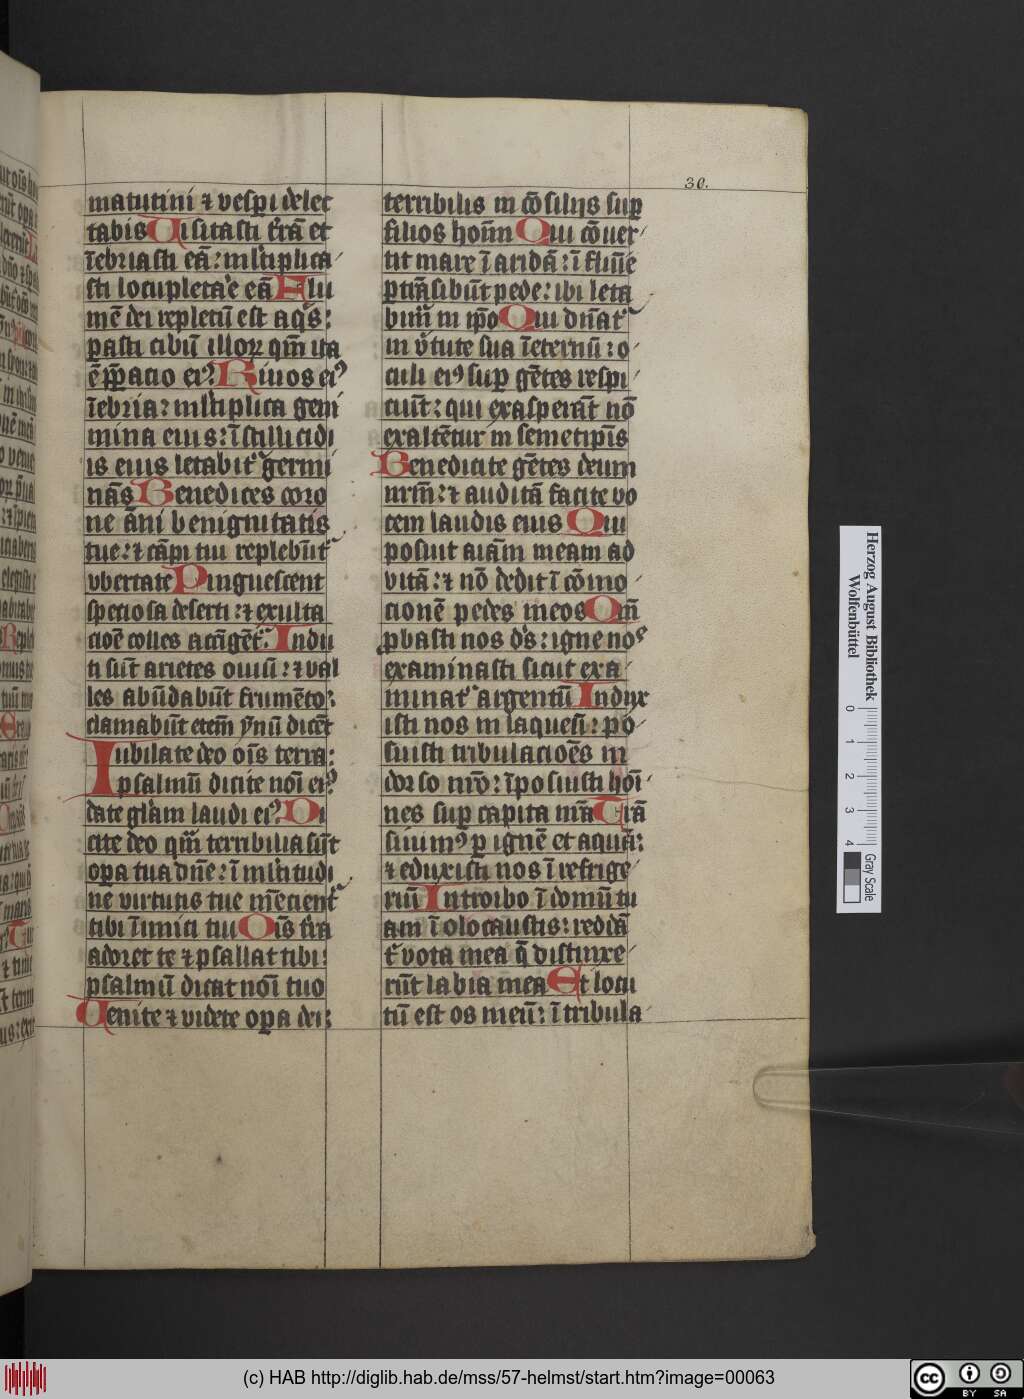 30.
matutini ⁊ vesp̱i delec
tabis Uisitasti t̄rā et
īebriasti eā: ml̄tiplica
sti locupleta͛e eā Flu
mē dei repletū est aqͥs:
ꝑasti cibū illoꝝ qm̄ ita
ē p̄ꝑatio eiꝰ Riuos eiꝰ
īebria: ml̄tiplica geni
mina eius: ī stillicidi
is eius letabit᷑ germi
nās Benedices coro
ne āni benignitatis
tue: ⁊ cāpi tui replebūt᷑
vbertate Pinguescent
speciosa deserti: ⁊ exulta
cioē colles accīgēt᷑: Indu
ti sūt arietes ouiū: ⁊ val
les abūdabūt frumēto:
clamabūt eteī ẏnū dicēt
Iubilate deo oīs terra:
psalmū dicite noī eiꝰ
date gl̄am laudi eiꝰ Di
cite deo qm̄ terribilia sūt
oꝑa tua dn̄e: ī ml̄titudi
ne virtutis tue mēcient᷑
tibi īimici tui Oīs t̄ra
adoret te ⁊ psallat tibi:
psalmū dicat noī tuo
Uenite ⁊ videte oꝑa dei:
terribilis in cōsiliis suꝑ
filios hoīm Qui cōuer
tit mare ī aridā: ī flumīe
ꝑtrāsibūt pede: ibi leta
bim᷑ in ip̄o Qui dn̄at᷑
in v̄tute sua īeternū: o
culi eiꝰ suꝑ gētes respi
ciūt: qui exasperāt nō
exaltēt᷑ in semetip̄is
Benedicite gētes deum
nr̄m: ⁊ auditā facite vo
cem laudis eius Qui
posuit aīam meam ad
vitā: ⁊ nō dedit ī cōmo
cionē pedes meos Qm̄
ꝓbasti nos dˢs: igne noˢ
examinasti sicut exa
minat᷑ argentū Indux
isti nos in laqueū: po
suisti tribulacioēs in
dorso nr̄o: īposuisti hoī
nes suꝑ capita nr̄a Trā
siuimꝰ ꝑ ignē et aquā:
⁊ eduxisti nos ī refrige
riū Introibo ī domū tu
am ī olocaustis: reddā
t᷑ vota mea q̄ distinxe
rūt labia mea Et locu
tū est os meū: ī tribula
Herzog August Bibliothek
Wolfenbüttel
0 1 2 3 4
Gray Scale
(c) HAB http://diglib.hab.de/mss/57-helmst/start.htm?image=00063
cc BY SA